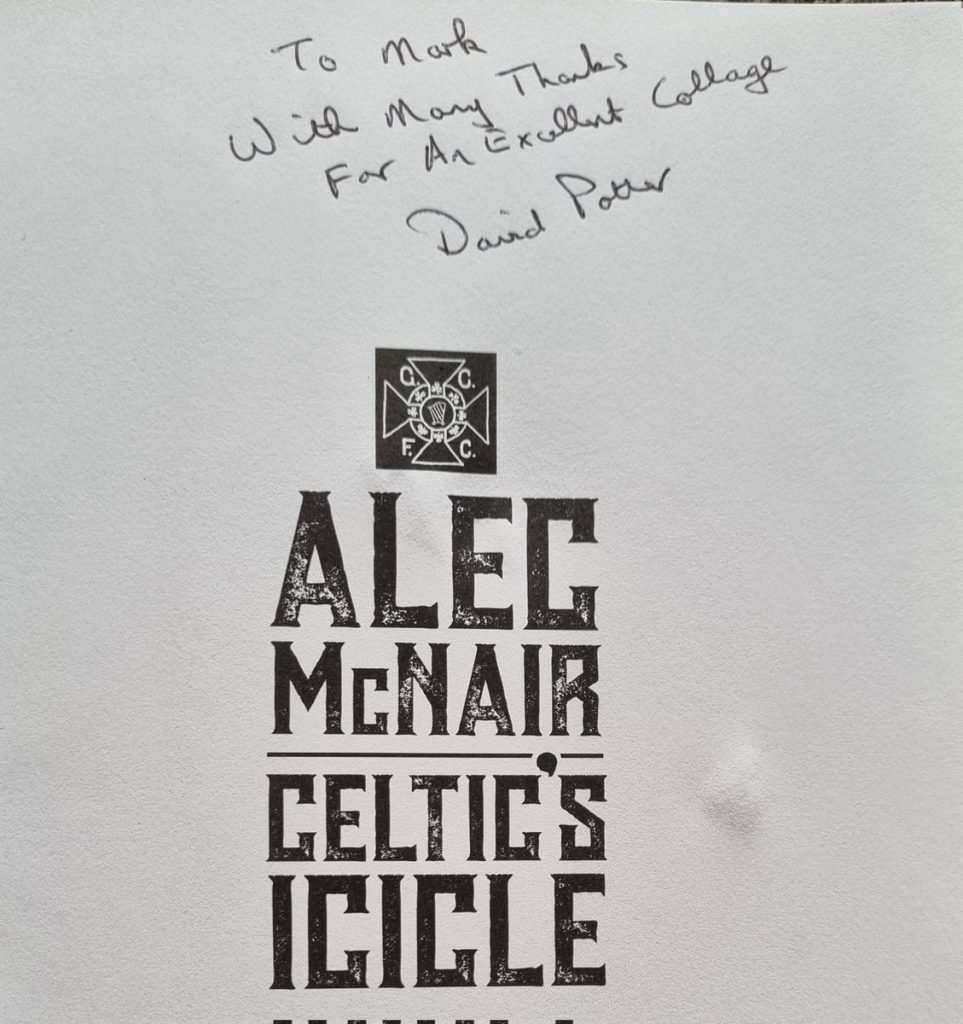 To Mark
With Many Thanks
For An Excellent Collage
David Potter
G. C.
F. C.
ALEC
McNAIR
CELTIC'S
ICICLE